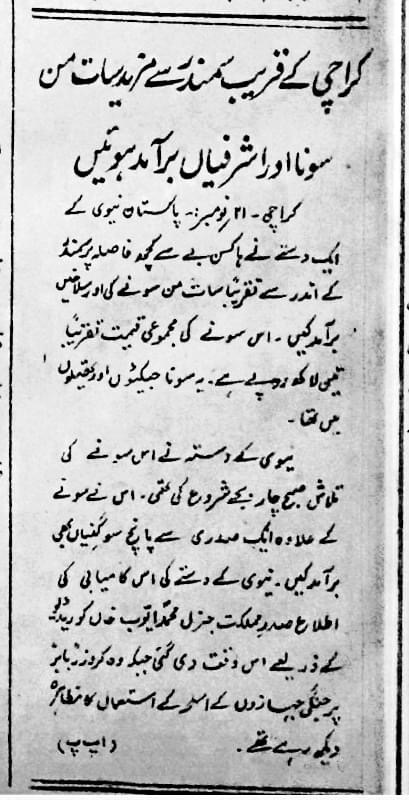 کراچی کے قریب سمندر سے مزید سات من
سونا اور اشرفیاں برآمد ہوئیں
کراچی ۔ ۲۱ نومبر:۔ پاکستان نیوی کے
ایک دستے نے ہاکس بے سے کچھ فاصلہ پر سمندر
کے اندر سے تقریباً سات من سونے کی اور سلاخیں
برآمد کیں ۔ اس سونے کی مجموعی قیمت تقریباً
تیس لاکھ روپے ہے ۔ یہ سونا جیکٹوں اور تھیلوں
میں تھا ۔
نیوی کے دستہ نے اس سونے کی
تلاش صبح چار بجے شروع کی تھی ۔ اس نے سونے
کے علاوہ ایک صدری سے پانچ سو گنیاں بھی
برآمد کیں ۔ نیوی کے دستے کی اس کامیابی کی
اطلاع صدر مملکت جنرل محمد ایوب خاں کو ریڈیو
کے ذریعے اس وقت دی گئی جبکہ وہ کروزر بابر
پر جنگی جہازوں کے اسلحہ کے استعمال کا مظاہرہ
دیکھ رہے تھے ۔ (ا پ پ)